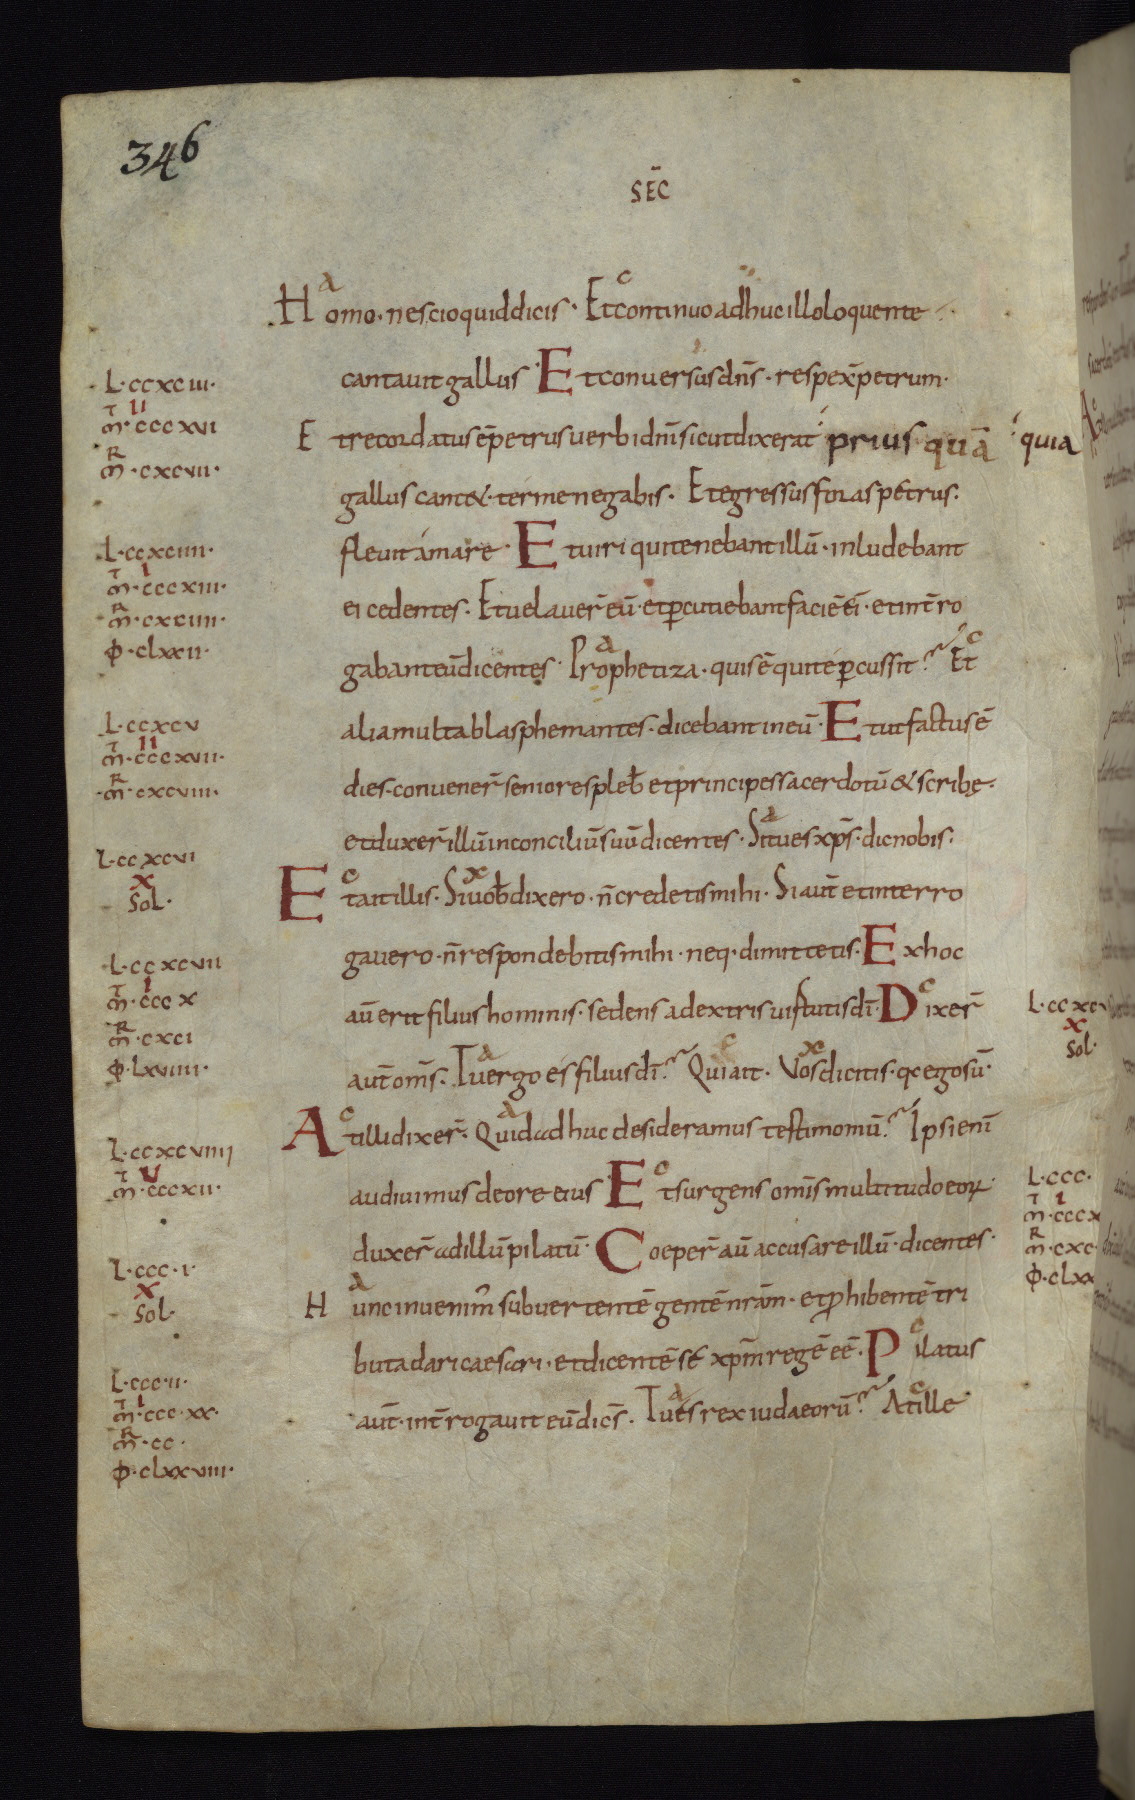 346
SEC̄
Homo · nescio quid dicis · Et continuo adhuc illo loquente
cantauit gallus · Et conuersus dn̄s · respex̄ petrum ·
Et recordatus ē petrus uerbi dn̄i sicut dixerat prius quā
quia
gallus cantet · ter me negabis · Et egressus foras petrus ·
fleuit amare · Et uiri qui tenebant illū · inludebant
ei cedentes · Et uelauer̄ eū · et percutiebant faciē ei · et inter̄ro
gabant eū dicentes · Prophetiza · quis ē qui te percussit? Et
alia multa blasphemantes · dicebant in eū · Et ut factus ē
dies · conuener̄ seniores pleb̄ et principes sacerdotū & scribę ·
et duxer̄ illū in conciliū suū dicentes · Si tu es xp̄s · dic nobis ·
Et ait illis · Si uob̄ dixero · n̄ credetis mihi · Si aut̄ et interro
gauero · n̄ respondebitis mihi · neq · dimittetis · Ex hoc
aū erit filius hominis · sedens a dextris uirtutis dī · Dixer̄
aut̄ om̄s · Tu ergo es filius dī? Qui ait · Vos dicitis · qr ego sū ·
At illi dixer̄ · Quid adhuc desideramus testimoniū? Ipsi eni
audiuimus de ore eius · Et surgens omīs multitudo eorꝝ ·
duxer̄ ad illū pilatū · Coeper̄ aū accusare illū · dicentes ·
Hunc inuenim̄ subuertentē gentē nrām · et ꝓhibentē tri
buta dari caesari · et dicentē sé xpm̄ regē eē · Pilatus
aut̄ · inter̄rogauit eū dicēs · Tu es rex iudaeorū? At ille
L · ccxciii ·
T II
m̄ · cccxvi
R
m̄ · cxcvii ·
L · ccxciiii ·
T I
m̄ · cccxiii ·
R
m̄ · cxciiii ·
φ · clxxii ·
L · ccxcv
T II
m̄ · cccxvii ·
R
m̄ · cxcviii ·
L · ccxcvi
X
Sol ·
L · ccxcvii
T I
m̄ · cccx
R
m̄ · cxci
φ · lxviiii ·
L · ccxcviiii
T V
m̄ · cccxii ·
L · ccc · i ·
X
Sol ·
L · ccc · ii ·
T I
m̄ · ccc · xx ·
R
m̄ · cc ·
φ · clxxviii ·
L · ccxcv
X
Sol ·
L · ccc ·
T I
m̄ · cccx
R
m̄ · cxc ·
φ · clxx